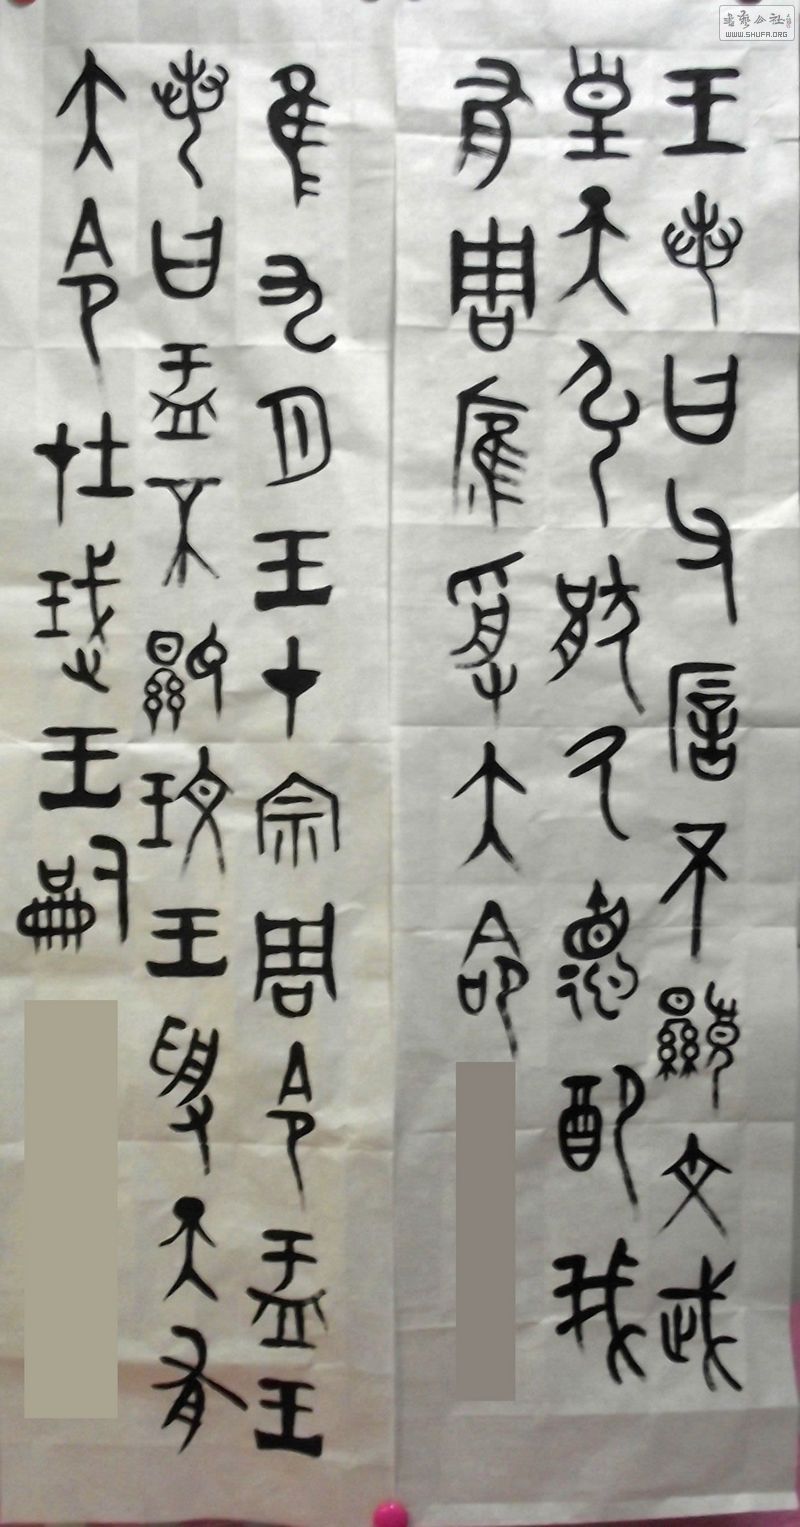 王若曰父㕌不顯文武
皇天引猒厥德配我
有周膺受大命
隹九月王才宗周令盂王
若曰盂不顯玟王受天有
大令在珷王嗣
書藝公社
WWW.SHUFA.ORG